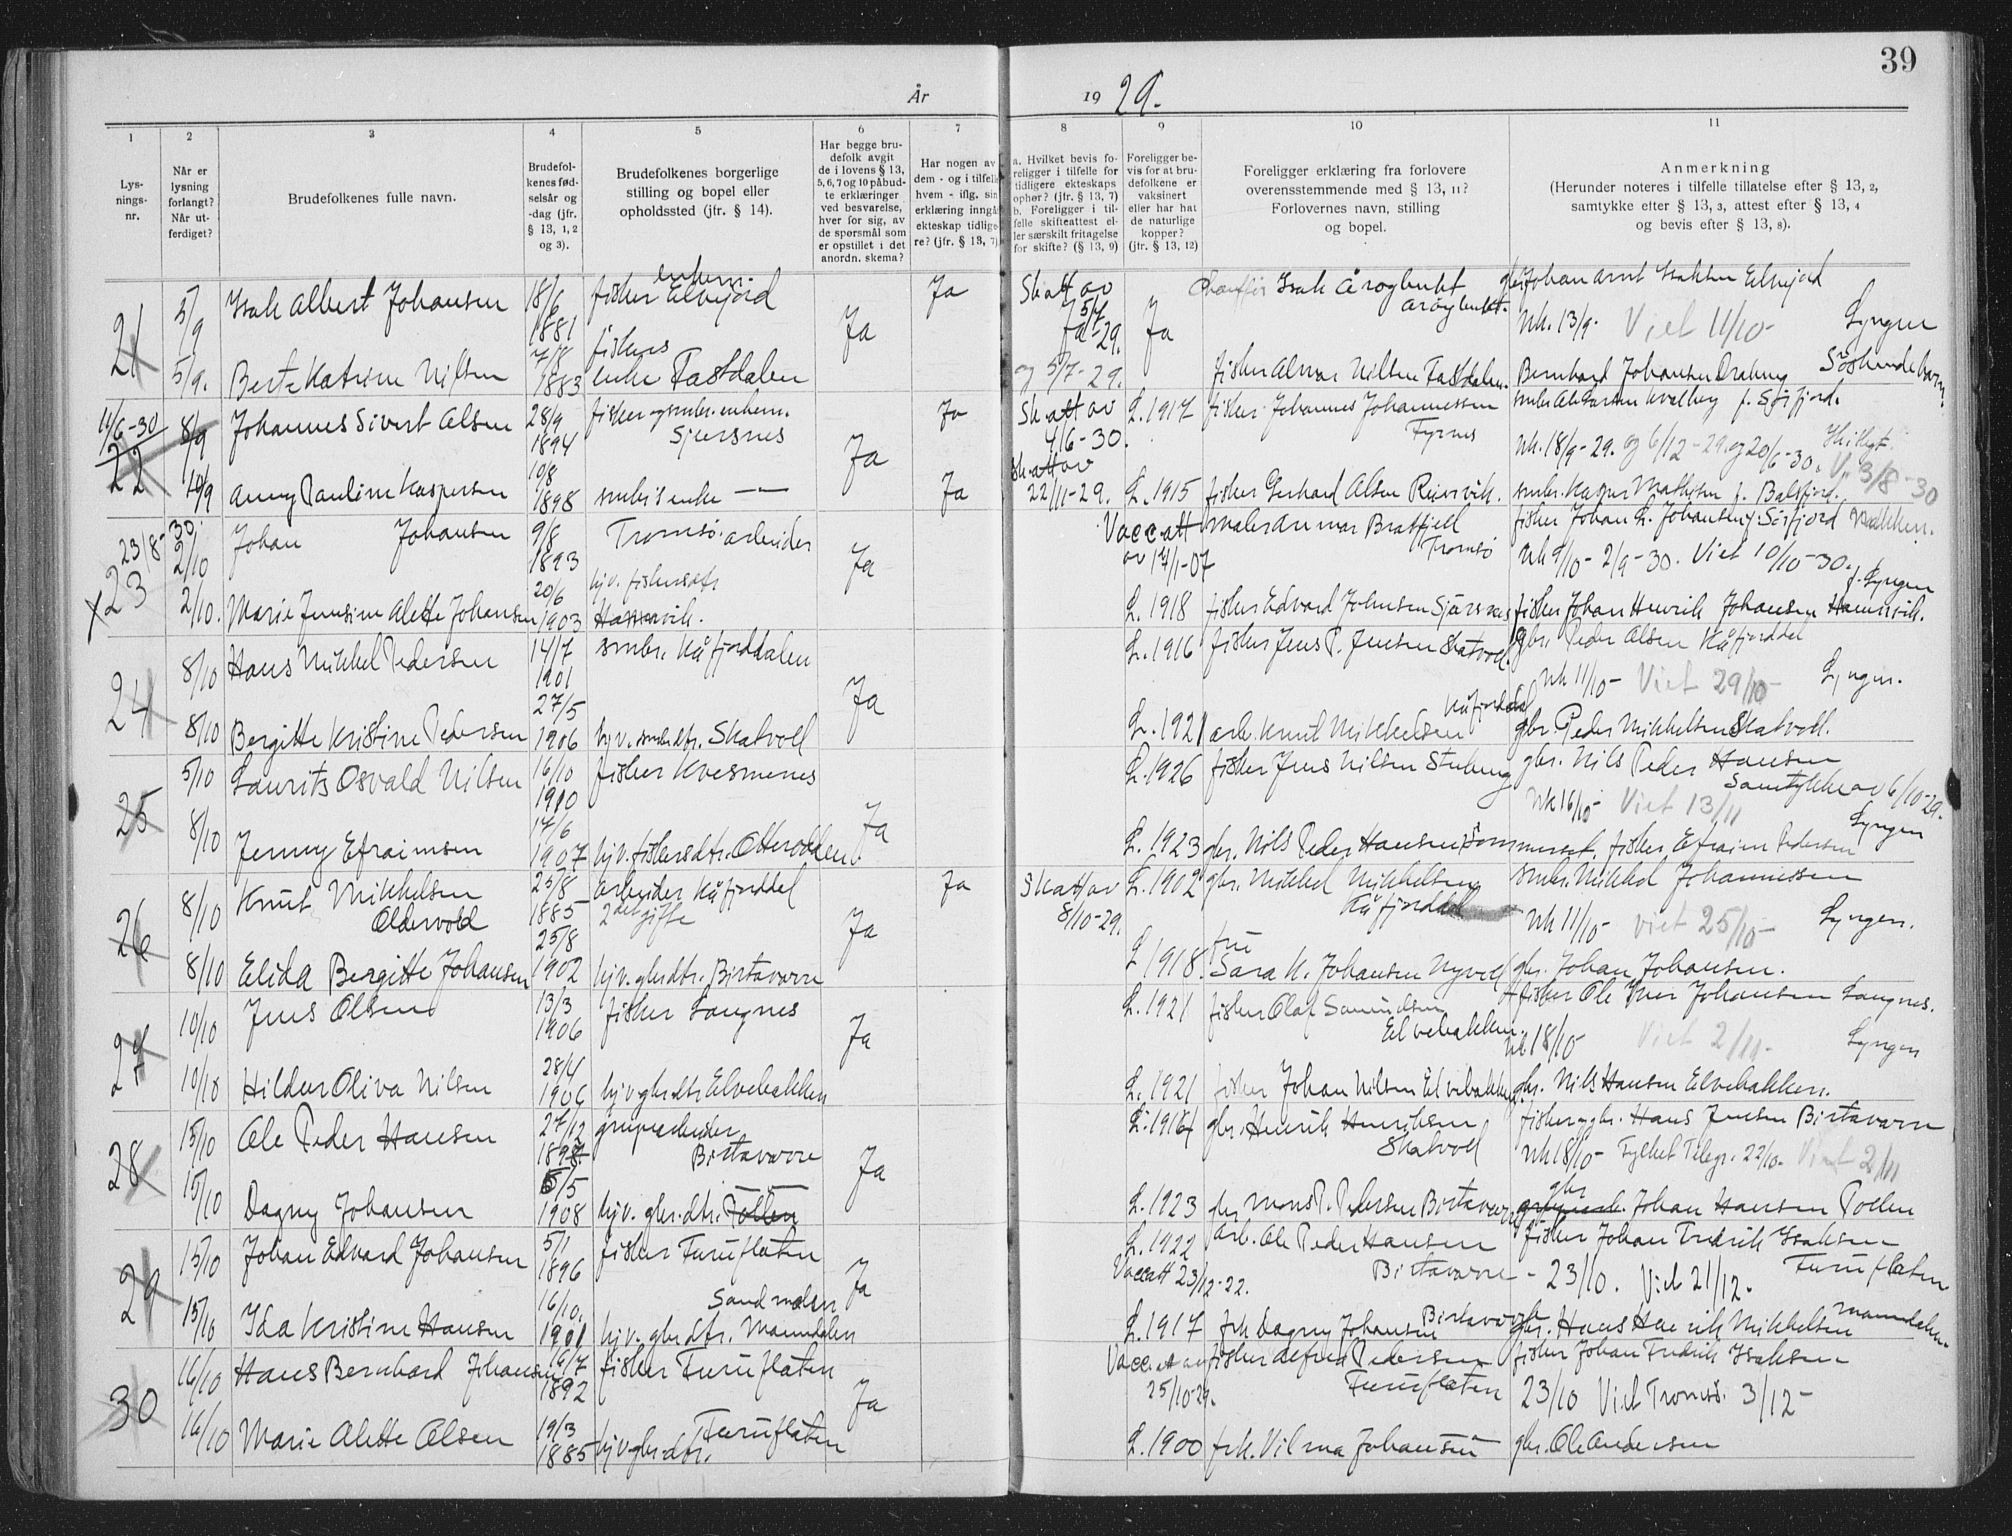 39
År 19 29.
1 2 3 4 5 6 7 8 9 10 11
Lysningsnr.
Når er lysning forlangt? Når utferdiget?
Brudefolkenes fulle navn.
Brudefolkenes fødselsår og -dag (jfr. § 13, 1, 2 og 3).
Brudefolkenes borgerlige stilling og bopel eller opholdssted (jfr. § 14).
Har begge brudefolk avgit de i lovens § 13, 5, 6, 7 og 10 påbudte erklæringer ved besvarelse, hver for sig, av de spørsmål som er opstillet i det anordn. skema?
Har nogen av dem - og i tilfelle hvem - iflg. sin erklæring inngått ekteskap tidligere? (jfr. § 13, 7)
a. Hvilket bevis foreligger i tilfelle for tidligere ekteskaps ophør? (jfr. § 13, 7) b. Foreligger i tilfelle skifteattest eller særskilt fritagelse for skifte? (§ 13, 9)
Foreligger bevis for at brudefolkene er vaksinert eller har hat de naturlige kopper? (jfr. § 13, 12)
Foreligger erklæring fra forlovere overensstemmende med § 13, 11? Forlovernes navn, stilling og bopel.
Anmerkning (Herunder noteres i tilfelle tillatelse efter § 13, 2, samtykke efter § 13, 3, attest efter § 13, 4 og bevis efter § 13, 8).
21 5/9 Isak Albert Johansen 18/6 1881 fisker enkem. Elvejord Ja Ja Skatt av 5/7 -29. Ja Isak Årøybukt Årøybukt. Johan Arnt Isaksen Elvejord
Nk. 13/9. Viet 11/10- Lyngen
5/9. Berte Katrine Nilsen 7/8 1883 fiskers enke Fastdalen og 5/7-29. fisker Almar Nilsen Fastdalen. Bernhard Johansen Søskendebarn
11/6-30 22 8/9 Johannes Sivert Olsen 28/9 1894 fisker og smbr. enkem. Sjursnes Ja Ja Skatt av 4/6-30. L. 1917 fisker Johannes Johannessen Tyrnes
Nk. 18/9-29. og 6/12-29. og 20/6-30. V. 3/8-30
10/9 Anny Pauline Kaspersen 10/8 1898 smbr's enke — Ja Skatt av 22/11-29. L. 1915 fisker Gerhard Olsen Reiervik. smbr. Kasper Mathisen f. Balsfjord.
23/8-30. x23 2/10 Johan Johansen 9/8 1893 Tromsø. arbeider Ja Vacc.att av 17/1-07 maler Anmar Bratfjell Tromsø fisker Johan L. Johansen f. Sørfjord
Nk 9/10-2/9-30. Viet 10/10-30. f. Lyngen
2/10. Marie Jensine Alette Johansen 20/6 1903 hjv. fiskersdtr. Hamnvik. L. 1918 fisker Edvard Johnsen Sjursnes fisker Johan Henrik Johansen Hamnvik.
24 8/10 Hans Mikkel Pedersen 14/7 1901 smbr. Kåfjorddalen Ja L. 1916 fisker Jens P. Jensen Skatvoll. gbr. Peder Olsen Kåfjorddal
Nk 11/10- Viet 29/10- Lyngen.
8/10 Bergitte Kristine Pedersen 27/5 1906 hjv. smbr.dtr. Skatvoll L. 1921 arb. Knut Mikkelsen Kåfjorddal gbr. Peder Mikkelsen Skatvoll.
25 5/10 Laurits Osvald Nilsen 16/10 1910 fisker Kvesmenes Ja L. 1926 fisker Jens Nilsen Stubeng gbr. Nils Peder Hansen
Samtykke av 6/10-29.
Nk 16/10- Viet 13/11 Lyngen
8/10 Jenny Efraimsen 17/6 1907 hjv. fiskersdtr. Olterodden L. 1923 gbr. Nils Peder Hansen Sommerset. fisker Efraim Pedersen
26 8/10 Knut Mikkelsen Oldervold 25/8 1885 arbeider Kåfjorddal 2det gifte Ja Ja Skatt av 8/10-29. L. 1902 gbr. Mikkel Mikkelsen Kåfjorddal smbr. Mikkel Johannessen
Nk 11/10- viet 25/10- Lyngen.
8/10 Elida Bergitte Johansen 25/8 1902 hjv. gbr.dtr. Birtavarre L 1918. fru Sara K. Johansen Nyvoll gbr. Johan Johansen.
27 10/10 Jens Olsen 13/3 1906 fisker Langnes Ja L. 1921 fisker Olaf Samuelsen Elvebakken. fisker Ole Iver Johansen Langnes.
Nk 18/10- Viet 2/11- Lyngen
10/10 Hildur Oliva Nilsen 28/4 1906 hjv gbr.dtr Elvebakken L. 1921 fisker Johan Nilsen Elvebakken gbr. Nils Hansen Elvebakken.
28 15/10 Ole Peder Hansen 27/12 1897 grupearbeider Birtavarre Ja L. 1914 gbr. Henrik Henriksen Skatvoll fisker og gbr. Hans Jensen Birtavarre
Nk 18/10- Fylket Telegr. 22/10- Viet 2/11
15/10 Dagny Johansen 5/5 1908 hjv. gbr.dtr. Pollen L. 1923 gbr Mons P. Pedersen Birtavarre gbr Johan Hansen Pollen
29 15/10 Johan Edvard Johansen 5/1 1896 fisker Furuflaten Ja L. 1922 Vacc.att 23/12-22. Arb. Ole Peder Hansen Birtavarre fisker Johan Fredrik Isaksen Furuflaten
- 23/10. Viet 21/12.
15/10 Ida Kristine Hansen 16/10. 1901 hjv. gbr.dtr. Manndalen L. 1917 frk Dagny Johansen Birtavarre gbr. Hans Henrik Mikkelsen Manndalen
30 16/10 Hans Bernhard Johansen 16/7 1892 fisker Furuflaten Ja Vacc.at av 25/10-29. fisker Alfred Pedersen Furuflaten fisker Johan Fredrik Isaksen
23/10 Viet Tromsø. 3/12-
16/10 Marie Alette Olsen 19/3 1885 hjv gbr.dtr. Furuflaten L. 1900 frk. Vilma Johansen gbr. Ole Andersen